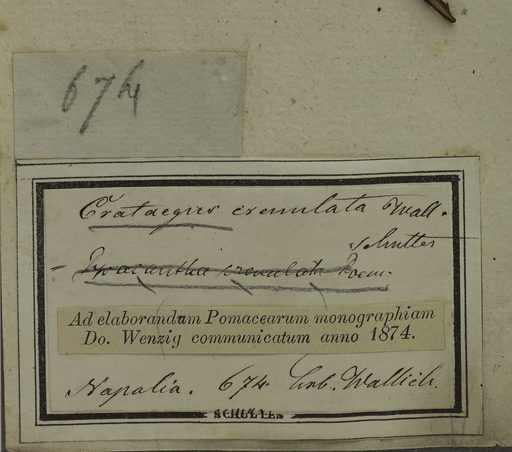 674
Crataegus crenulata Wall.
Pyracantha crenulata Roem.
Ad elaborandum Pomacearum monographiam
Do. Wenzig communicatum anno 1874.
Napalia. 674 hrb. Wallich.